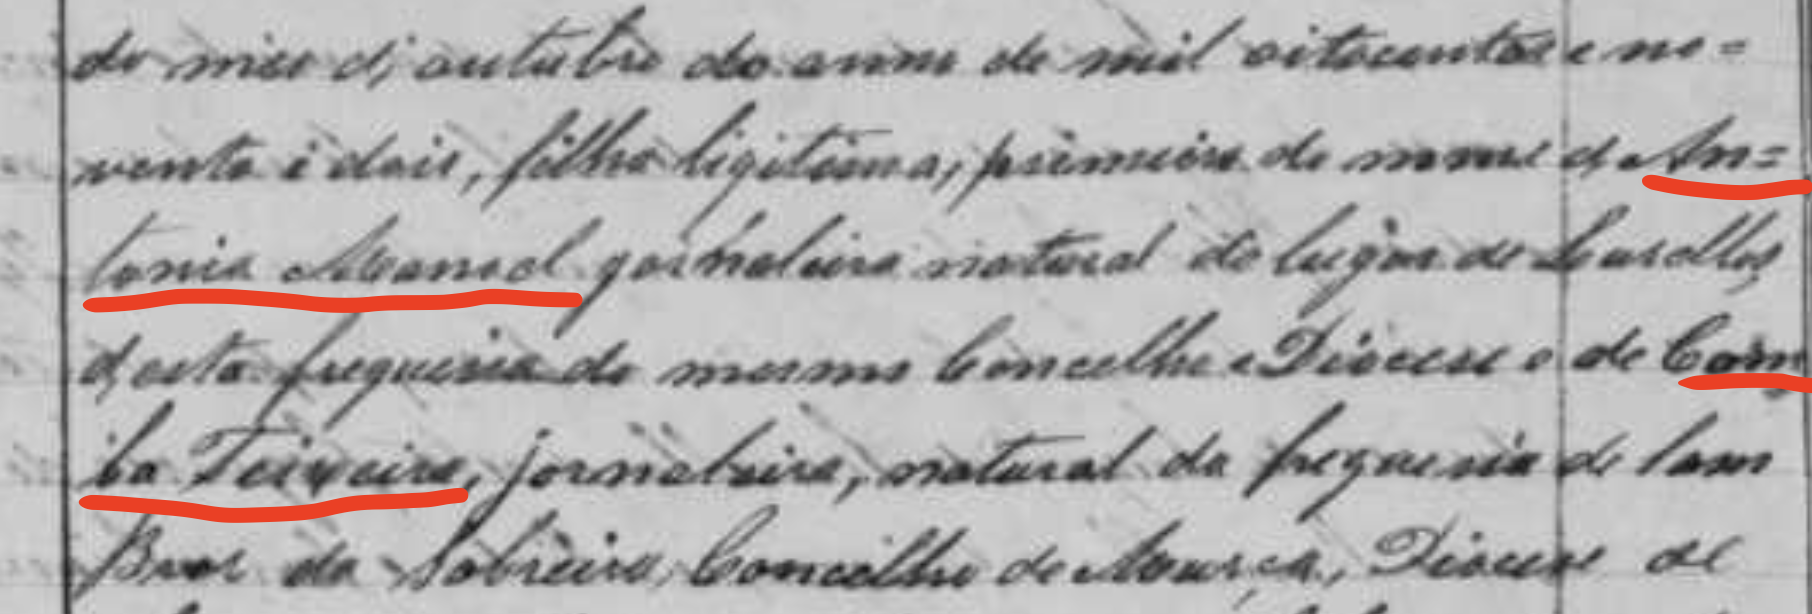 do mes d'outubro do anno de mil oitocentos e no=
venta e dois, filho ligitimo, primeiro do nome de An=
tonio Manoel jornaleiro natural do lugar de
d'esta freguesia do mesmo Concelho e Diocese e de Com
ba Teixeira, jornaleira, natural da freguesia de
da Sobreira, Concelho de Mourça, Diocese de